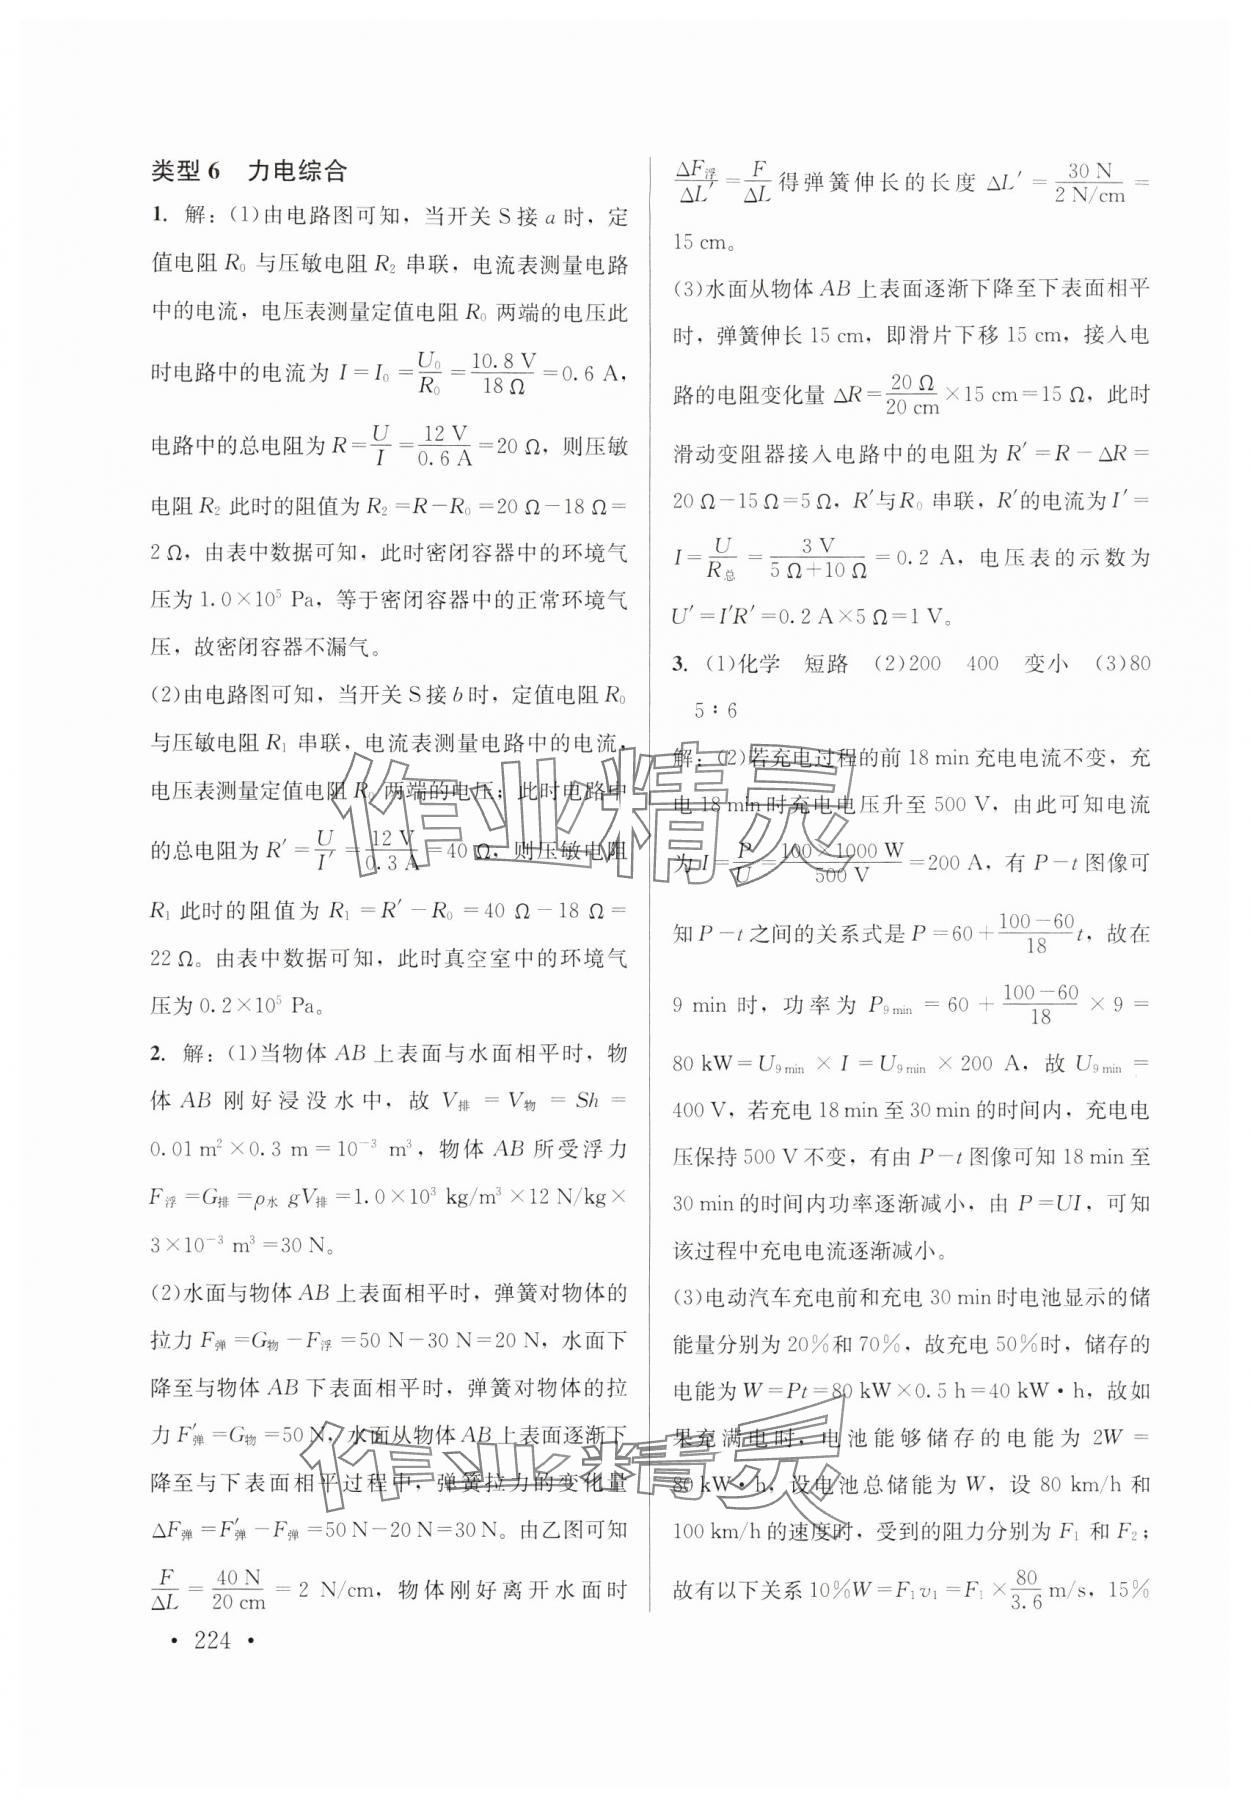 类型 6　力电综合
1. 解：(1)由电路图可知，当开关 S 接 a 时，定
值电阻 R₀ 与压敏电阻 R₂ 串联，电流表测量电路
中的电流，电压表测量定值电阻 R₀ 两端的电压此
时电路中的电流为 I＝I₀＝U₀/R₀＝10.8 V/18 Ω＝0.6 A，
电路中的总电阻为 R＝U/I＝12 V/0.6 A＝20 Ω，则压敏
电阻 R₂ 此时的阻值为 R₂＝R－R₀＝20 Ω－18 Ω＝
2 Ω，由表中数据可知，此时密闭容器中的环境气
压为 1.0×10⁵ Pa，等于密闭容器中的正常环境气
压，故密闭容器不漏气。
(2)由电路图可知，当开关 S 接 b 时，定值电阻 R₀
与压敏电阻 R₁ 串联，电流表测量电路中的电流，
电压表测量定值电阻 R₀ 两端的电压；此时电路中
的总电阻为 R′＝U/I′＝12 V/0.3 A＝40 Ω，则压敏电阻
R₁ 此时的阻值为 R₁＝R′－R₀＝40 Ω－18 Ω＝
22 Ω。由表中数据可知，此时真空室中的环境气
压为 0.2×10⁵ Pa。
2. 解：(1)当物体 AB 上表面与水面相平时，物
体 AB 刚好浸没水中，故 V排＝V物＝Sh＝
0.01 m²×0.3 m＝10⁻³ m³，物体 AB 所受浮力
F浮＝G排＝ρ水 gV排＝1.0×10³ kg/m³×12 N/kg×
3×10⁻³ m³＝30 N。
(2)水面与物体 AB 上表面相平时，弹簧对物体的
拉力 F弹＝G物－F浮＝50 N－30 N＝20 N，水面下
降至与物体 AB 下表面相平时，弹簧对物体的拉
力 F′弹＝G物＝50 N，水面从物体 AB 上表面逐渐下
降至与下表面相平过程中，弹簧拉力的变化量
ΔF弹＝F′弹－F弹＝50 N－20 N＝30 N。由乙图可知
F/ΔL＝40 N/20 cm＝2 N/cm，物体刚好离开水面时
• 224 •
ΔF浮/ΔL′＝F/ΔL得弹簧伸长的长度 ΔL′＝30 N/2 N/cm＝
15 cm。
(3)水面从物体 AB 上表面逐渐下降至下表面相平
时，弹簧伸长 15 cm，即滑片下移 15 cm，接入电
路的电阻变化量 ΔR＝20 Ω/20 cm×15 cm＝15 Ω，此时
滑动变阻器接入电路中的电阻为 R′＝R－ΔR＝
20 Ω－15 Ω＝5 Ω，R′与 R₀ 串联，R′的电流为 I′＝
I＝U/R总＝3 V/5 Ω＋10 Ω＝0.2 A，电压表的示数为
U′＝I′R′＝0.2 A×5 Ω＝1 V。
3. (1)化学　短路　(2)200　400　变小　(3)80
5∶6
解：(2)若充电过程的前 18 min 充电电流不变，充
电 18 min 时充电电压升至 500 V，由此可知电流
为 I＝P/U＝100×1000 W/500 V＝200 A，有 P－t 图像可
知 P－t 之间的关系式是 P＝60＋100－60/18t，故在
9 min 时，功率为 P9 min＝60＋100－60/18×9＝
80 kW＝U9 min×I＝U9 min×200 A，故 U9 min＝
400 V，若充电 18 min 至 30 min 的时间内，充电电
压保持 500 V 不变，有由 P－t 图像可知 18 min 至
30 min 的时间内功率逐渐减小，由 P＝UI，可知
该过程中充电电流逐渐减小。
(3)电动汽车充电前和充电 30 min 时电池显示的储
能量分别为 20%和 70%，故充电 50%时，储存的
电能为 W＝Pt＝80 kW×0.5 h＝40 kW·h，故如
果充满电时，电池能够储存的电能为 2W＝
80 kW·h，设电池总储能为 W，设 80 km/h 和
100 km/h 的速度时，受到的阻力分别为 F₁ 和 F₂；
故有以下关系 10%W＝F₁v₁＝F₁×80/3.6 m/s，15%
作业精灵
作业精灵